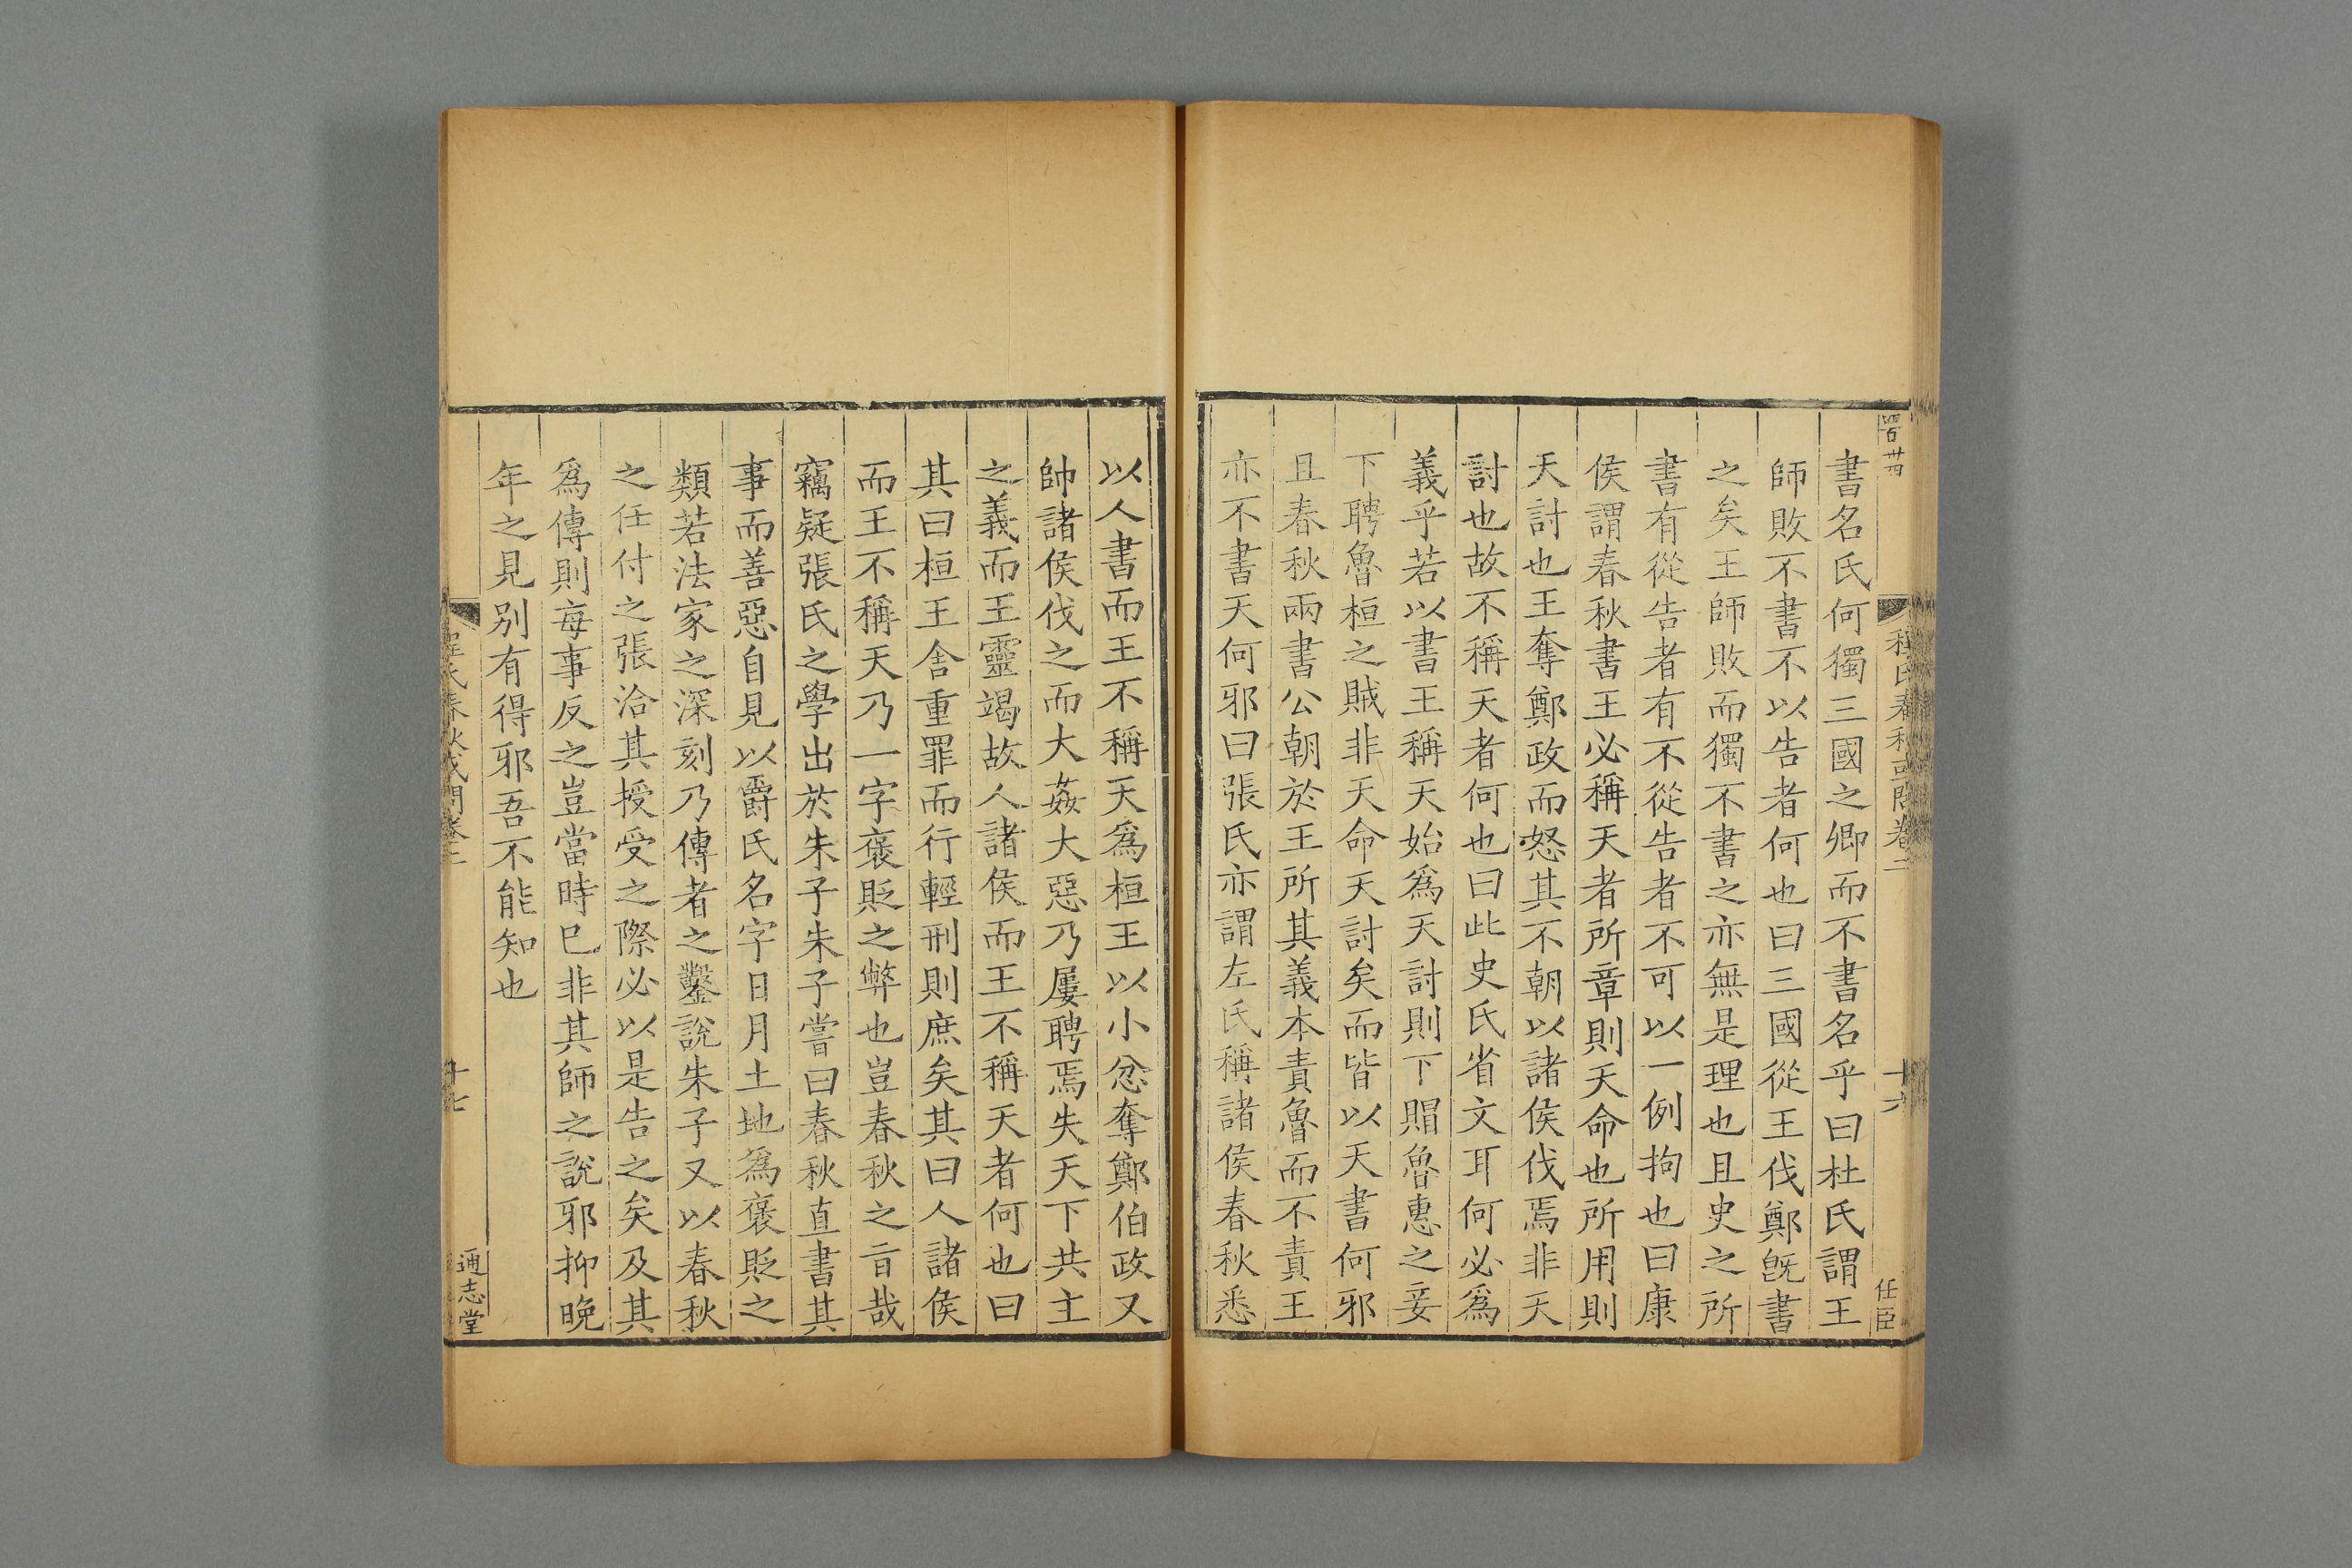 書名氏何獨三國之卿而不書名乎曰杜氏謂王
師敗不書不以告者何也曰三國從王伐鄭旣書
之矣王師敗而獨不書之亦無是理也且史之所
書有從告者有不從告者不可以一例拘也曰康
侯謂春秋書王必稱天者所章則天命也所用則
天討也王奪鄭政而怒其不朝以諸侯伐焉非天
討也故不稱天者何也曰此史氏省文耳何必爲
義乎若以書王稱天始爲天討則下賵魯惠之妾
下聘魯桓之賊非天命天討矣而皆以天書何邪
且春秋兩書公朝於王所其義本責魯而不責王
亦不書天何邪曰張氏亦謂左氏稱諸侯春秋悉
以人書而王不稱天爲桓王以小忿奪鄭伯政又
帥諸侯伐之而大姦大惡乃屢聘焉失天下共主
之義而王靈竭故人諸侯而王不稱天者何也曰
其曰桓王舍重罪而行輕刑則庶矣其曰人諸侯
而王不稱天乃一字褒貶之弊也豈春秋之旨哉
竊疑張氏之學出於朱子朱子嘗曰春秋直書其
事而善惡自見以爵氏名字日月土地爲褒貶之
類若法家之深刻乃傳者之鑿說朱子又以春秋
之任付之張洽其授受之際必以是告之矣及其
爲傳則每事反之豈當時已非其師之說邪抑晚
年之見別有得邪吾不能知也
程氏春秋或問卷二
十七
通志堂
十六
任臣